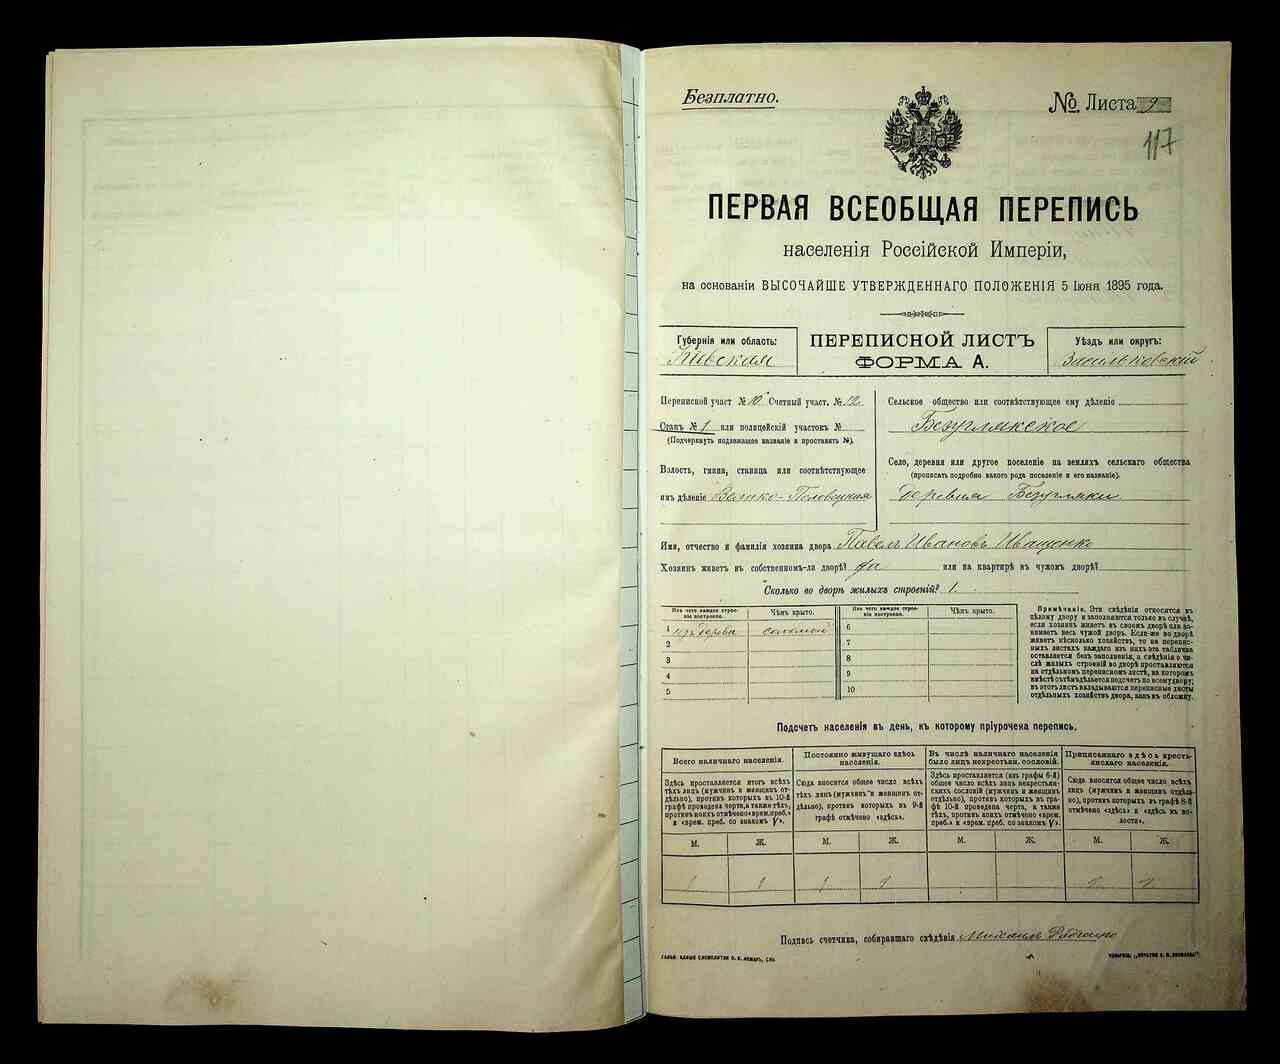 Безплатно.
№ Листа 9
117
ПЕРВАЯ ВСЕОБЩАЯ ПЕРЕПИСЬ
населенія Россійской Имперіи,
на основаніи ВЫСОЧАЙШЕ УТВЕРЖДЕННАГО ПОЛОЖЕНІЯ 5 Іюня 1895 года.
Губернія или область:
Кіевская
ПЕРЕПИСНОЙ ЛИСТЪ
ФОРМА А.
Уѣздъ или округъ:
Васильковскій
Переписной участ № 10 Счетный участ. № 12
Станъ № 1 или полицейскій участокъ №
(Подчеркнуть подлежащее названіе и проставить №).
Волость, гмина, станица или соотвѣтствующее
имъ дѣленіе Велико-Половецкая
Сельское общество или соотвѣтствующее ему дѣленіе
Безуглякское
Село, деревня или другое поселеніе на земляхъ сельскаго общества
(прописать подробно какого рода поселеніе и его названіе).
деревня Безугляки
Имя, отчество и фамилія хозяина двора Павелъ Ивановъ Иващенко
Хозяинъ живетъ въ собственномъ-ли дворѣ? да или на квартирѣ въ чужомъ дворѣ?
Сколько во дворѣ жилыхъ строеній? 1.
Изъ чего каждое строеніе построено. Чѣмъ крыто. Изъ чего каждое строеніе построено. Чѣмъ крыто.
1 изъ дерева соломой 6
2 7
3 8
4 9
5 10
Примѣчаніе. Эти свѣдѣнія относятся къ
цѣлому двору и заполняются только въ случаѣ,
если хозяинъ живетъ въ своемъ дворѣ или занимаетъ
весь чужой дворъ. Если-же во дворѣ
живетъ нѣсколько хозяйствъ, то на переписныхъ
листахъ каждаго изъ нихъ эта табличка
оставляется безъ заполненія, а свѣдѣнія о числѣ
жилыхъ строеній во дворѣ проставляются
на отдѣльномъ переписномъ листѣ, на которомъ
вмѣстѣ съ тѣмъ дѣлается подсчетъ по всему двору;
въ этотъ листъ вкладываются переписные листы
отдѣльныхъ хозяйствъ двора, какъ въ обложку.
Подсчетъ населенія въ день, къ которому пріурочена перепись.
Всего наличнаго населенія.
Здѣсь проставляется итогъ всѣхъ
тѣхъ лицъ (мужчинъ и женщинъ отдѣльно),
противъ которыхъ въ 10-й
графѣ проведена черта, а также тѣхъ,
противъ коихъ отмѣчено «врем. преб.»
и «врем. преб. со знакомъ V».
Постоянно живущаго здѣсь
населенія.
Сюда вносится общее число всѣхъ
тѣхъ лицъ (мужчинъ и женщинъ отдѣльно),
противъ которыхъ въ 9-й
графѣ отмѣчено «здѣсь».
Въ числѣ наличнаго населенія
было лицъ некрестьян. сословій.
Здѣсь проставляется (изъ графы 6-й)
общее число всѣхъ лицъ некрестьянскихъ
сословій (мужчинъ и женщинъ
отдѣльно), противъ которыхъ въ графѣ
10-й проведена черта, а также
тѣхъ, противъ коихъ отмѣчено «врем.
преб.» и «врем. преб. со знакомъ V».
Приписаннаго здѣсь крестьянскаго
населенія.
Сюда вносится общее число всѣхъ
лицъ (мужчинъ и женщинъ отдѣльно),
противъ которыхъ въ графѣ 8-й
отмѣчено «здѣсь» и «здѣсь въ волости».
М. Ж. М. Ж. М. Ж. М. Ж.
1 1 1 1 1 1
Подпись счетчика, собиравшаго свѣдѣнія Михаилъ